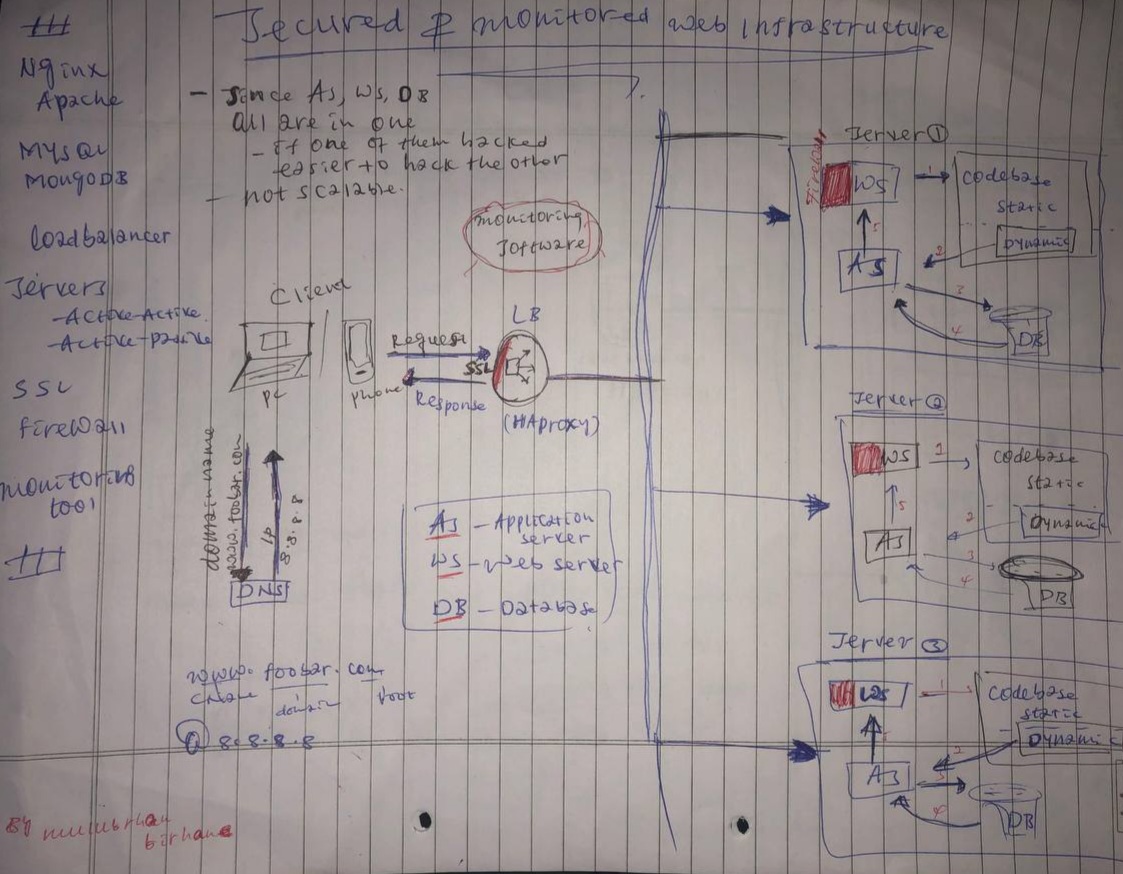 Secured & monitored web infrastructure
Nginx
Apache
MYSQL
MongoDB
loadbalancer
Servers
-Active-Active
-Active-passive
SSL
firewall
monitoring
tool
- Since AS, WS, DB
all are in one
- if one of them hacked
easier to hack the other
- not scalable.
monitoring
Software
Client
PC
phone
Request
SSL
Response
LB
(HAproxy)
domain name
www.foobar.com
IP
8.8.8.8
DNS
AS - Application
server
WS - web server
DB - Database
www. foobar. com
cname
domain
root
A 8.8.8.8
By
birhane
Server 1
firewall
WS
1
codebase
static
Dynamic
2
AS
5
3
4
DB
Server 2
WS
1
codebase
static
Dynamic
2
5
AS
3
4
DB
Server 3
WS
1
codebase
static
Dynamic
2
5
AS
3
4
DB